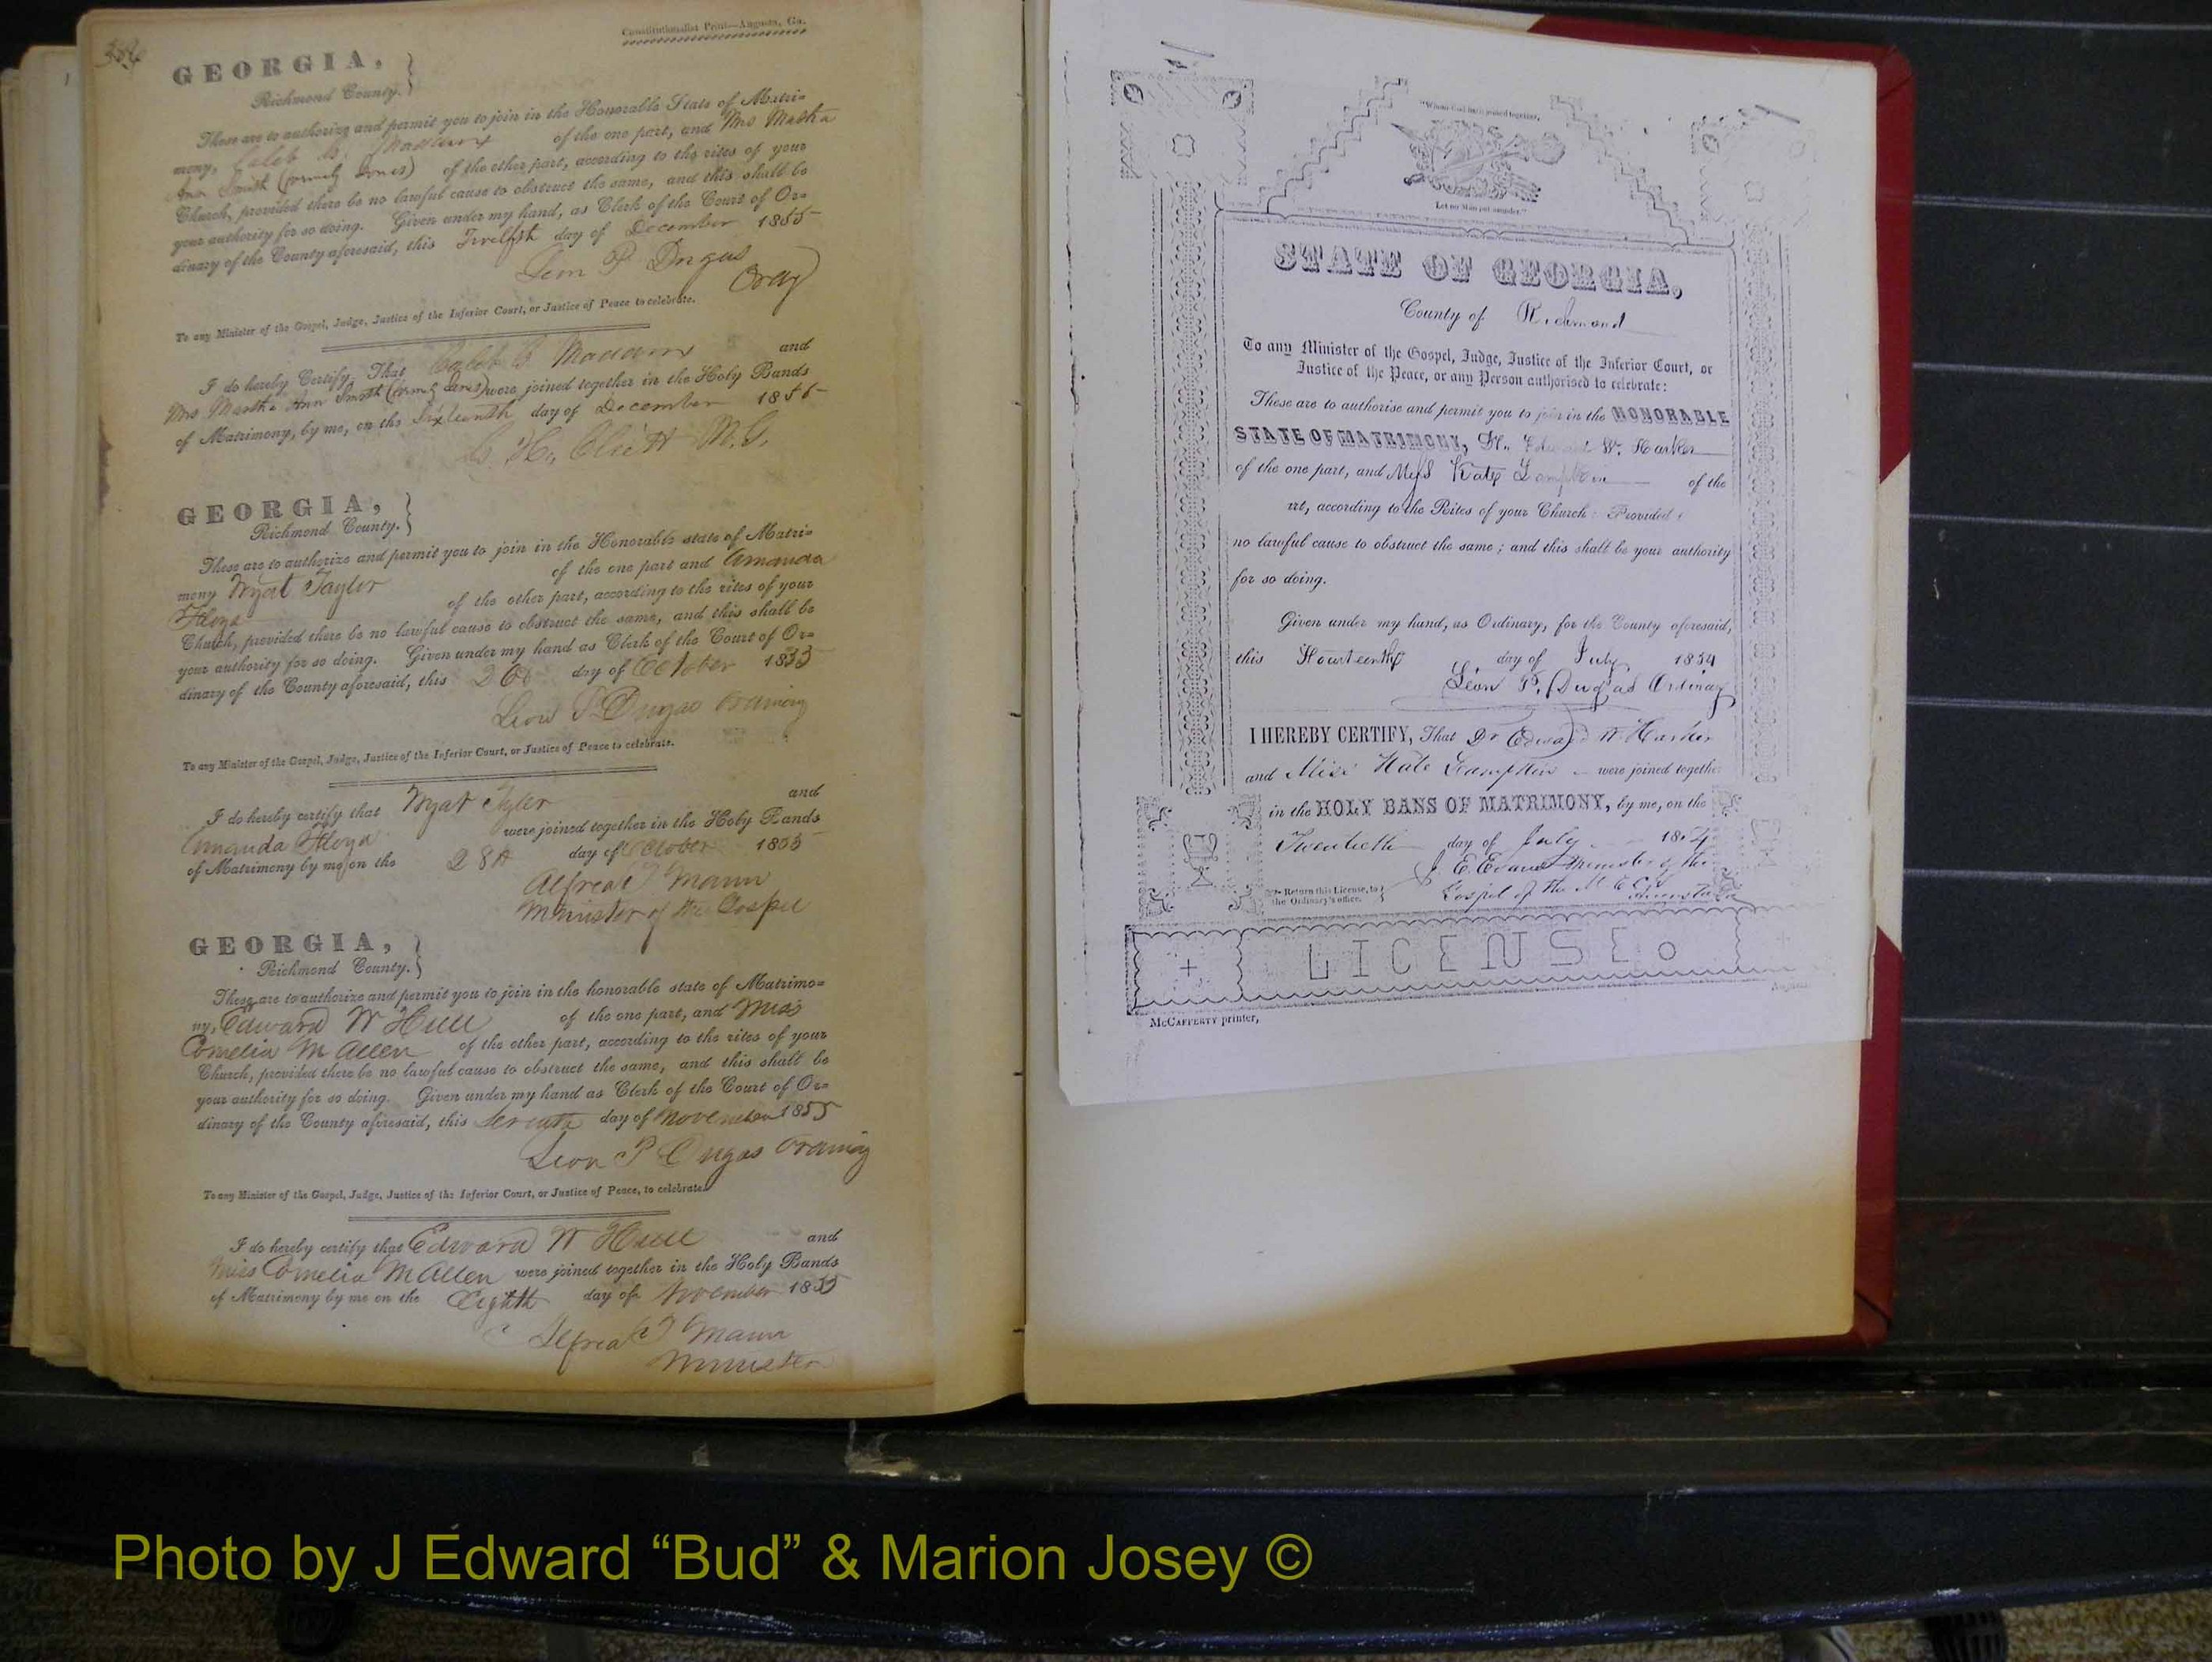 Constitutionalist Print—Augusta, Ga.
GEORGIA,
Richmond County.
These are to authorize and permit you to join in the Honorable State of Matri-
mony, Caleb of the one part, and Mrs Martha
Ann Smith (formerly Jones) of the other part, according to the rites of your
Church, provided there be no lawful cause to obstruct the same, and this shall be
your authority for so doing. Given under my hand, as Clerk of the Court of Or-
dinary of the County aforesaid, this Twelfth day of December 1855
Leon P Dugas
Ordy
To any Minister of the Gospel, Judge, Justice of the Inferior Court, or Justice of Peace to celebrate.
I do hereby Certify, That Caleb and
Mrs Martha Ann Smith (formerly Jones) were joined together in the Holy Bands
of Matrimony, by me, on the Sixteenth day of December 1855
M.G.
GEORGIA,
Richmond County.
These are to authorize and permit you to join in the Honorable state of Matri-
mony Wyat Taylor of the one part and Amanda
Floyd of the other part, according to the rites of your
Church, provided there be no lawful cause to obstruct the same, and this shall be
your authority for so doing. Given under my hand as Clerk of the Court of Or-
dinary of the County aforesaid, this day of October 1855
Leon P Dugas Ordinary
To any Minister of the Gospel, Judge, Justice of the Inferior Court, or Justice of Peace to celebrate.
I do hereby certify that Wyat Tyler and
Amanda Floyd were joined together in the Holy Bands
of Matrimony by me on the 28th day of October 1855
Alfred T Mann
Minister of the Gospel
GEORGIA,
Richmond County.
These are to authorize and permit you to join in the honorable state of Matrimo-
ny, Edward W Hull of the one part, and Miss
Cornelia M Allen of the other part, according to the rites of your
Church, provided there be no lawful cause to obstruct the same, and this shall be
your authority for so doing. Given under my hand as Clerk of the Court of Or-
dinary of the County aforesaid, this Seventh day of November 1855
Leon P Dugas Ordinary
To any Minister of the Gospel, Judge, Justice of the Inferior Court, or Justice of Peace, to celebrate.
I do hereby certify that Edward W Hull and
Miss Cornelia M Allen were joined together in the Holy Bands
of Matrimony by me on the Eighth day of November 1855
Alfred T Mann
Minister
"Whom God hath joined together,
Let no Man put asunder."
STATE OF GEORGIA,
County of Richmond
To any Minister of the Gospel, Judge, Justice of the Inferior Court, or
Justice of the Peace, or any Person authorised to celebrate:
These are to authorise and permit you to join in the HONORABLE
STATE OF MATRIMONY, Dr. Edward W. Harker
of the one part, and Miss Kate Lampkin of the
rt, according to the Rites of your Church: Provided
no lawful cause to obstruct the same; and this shall be your authority
for so doing.
Given under my hand, as Ordinary, for the County aforesaid,
this Fourteenth day of July 1854
Leon P. Dugas Ordinary
I HEREBY CERTIFY, That Dr Edward W Harker
and Miss Kate Lampkin were joined togethe
in the HOLY BANS OF MATRIMONY, by me, on the
Twentieth day of July 1854
J. E. Evans Minister of the
Gospel of the M. E. Ch
Return this License, to
the Ordinary's office.
LICENSE.
McCAFFERTY printer,
Photo by J Edward “Bud” & Marion Josey ©